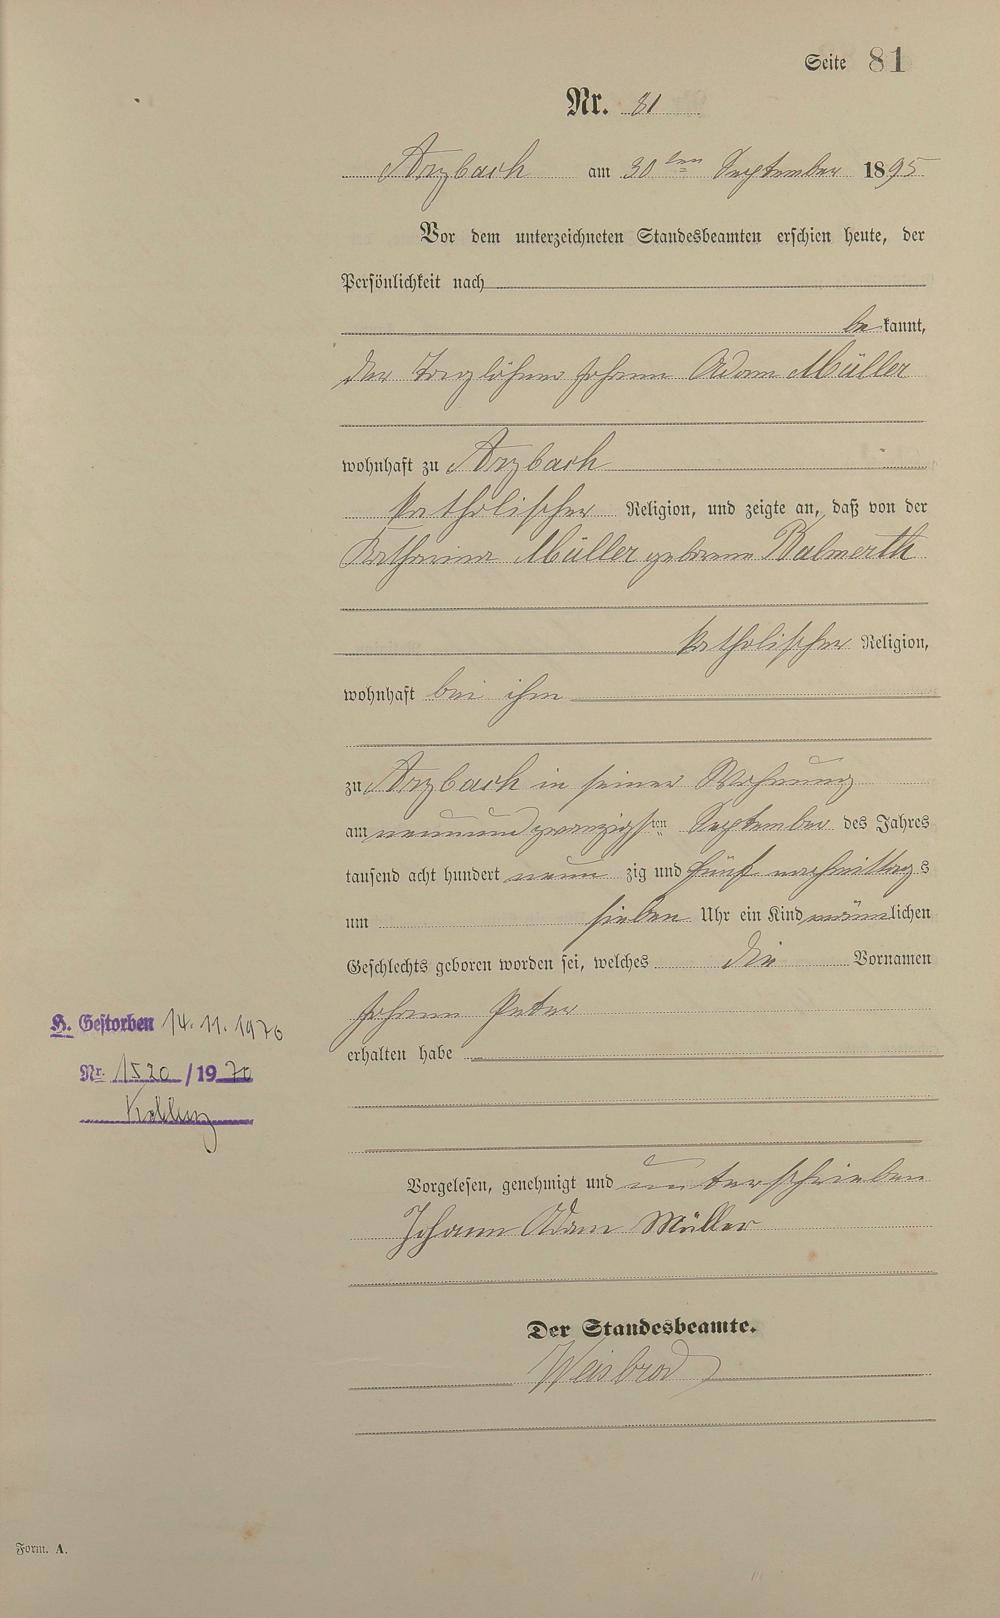 Seite 81
Nr. 81
Arzbach am 30ten September 1895
Vor dem unterzeichneten Standesbeamten erschien heute, der
Persönlichkeit nach
bekannt,
der Taglöhner Johann Adam Müller
wohnhaft zu Arzbach
katholischer Religion, und zeigte an, daß von der
Katharina Müller geborene Balmerth
katholischer Religion,
wohnhaft bei ihm
zu Arzbach in seiner Wohnung
am neunundzwanzigsten September des Jahres
tausend acht hundert neunzig und fünf nachmittags
um sieben Uhr ein Kind männlichen
Geschlechts geboren worden sei, welches die Vornamen
Johann Peter
erhalten habe
H. Gestorben 14.11.1970
Nr. 1520/1970
Koblenz
Vorgelesen, genehmigt und unterschrieben
Johann Adam Müller
Der Standesbeamte.
Weisbrod
Form. A.